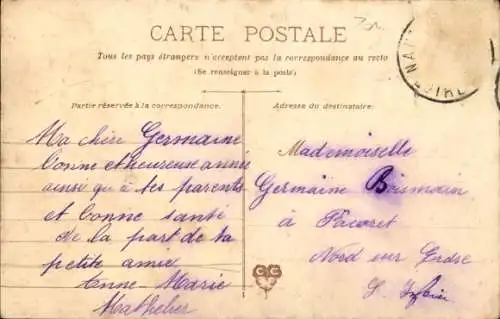 CARTE POSTALE
Tous les pays étrangers n'acceptent pas la correspondance au recto
(Se renseigner à la poste)
Partie réservée à la correspondance.
Ma chère Germaine
bonne et heureuse année
ainsi qu'à tes parents
et bonne santé
de la part de ta
petite amie
Anne-Marie
Adresse du destinataire.
Mademoiselle
Germaine
à
Nord sur Erdre
L. Infre
CC